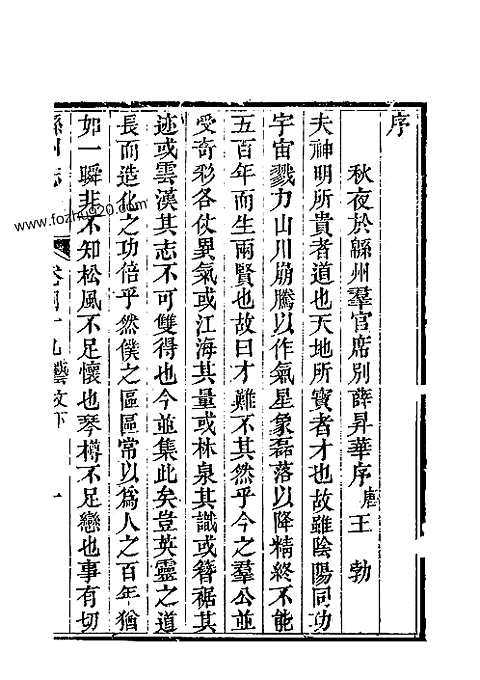 序
秋夜於緜州羣官席別薛昇華序 唐 王 勃
夫神明所貴者道也天地所寶者才也故雖陰陽同功
宇宙戮力山川崩騰以作氣星象磊落以降精終不能
五百年而生兩賢也故曰才難不其然乎今之羣公並
受奇彩各仗異氣或江海其量或林泉其識或簪裾其
迹或雲漢其志不可雙得也今並集此矣豈英靈之道
長而造化之功倍乎然僕之區區常以爲人之百年猶
如一瞬非不知松風不足懷也琴樽不足戀也事有切
緜州志 卷四十九藝文下 一
www.fozhu920.com